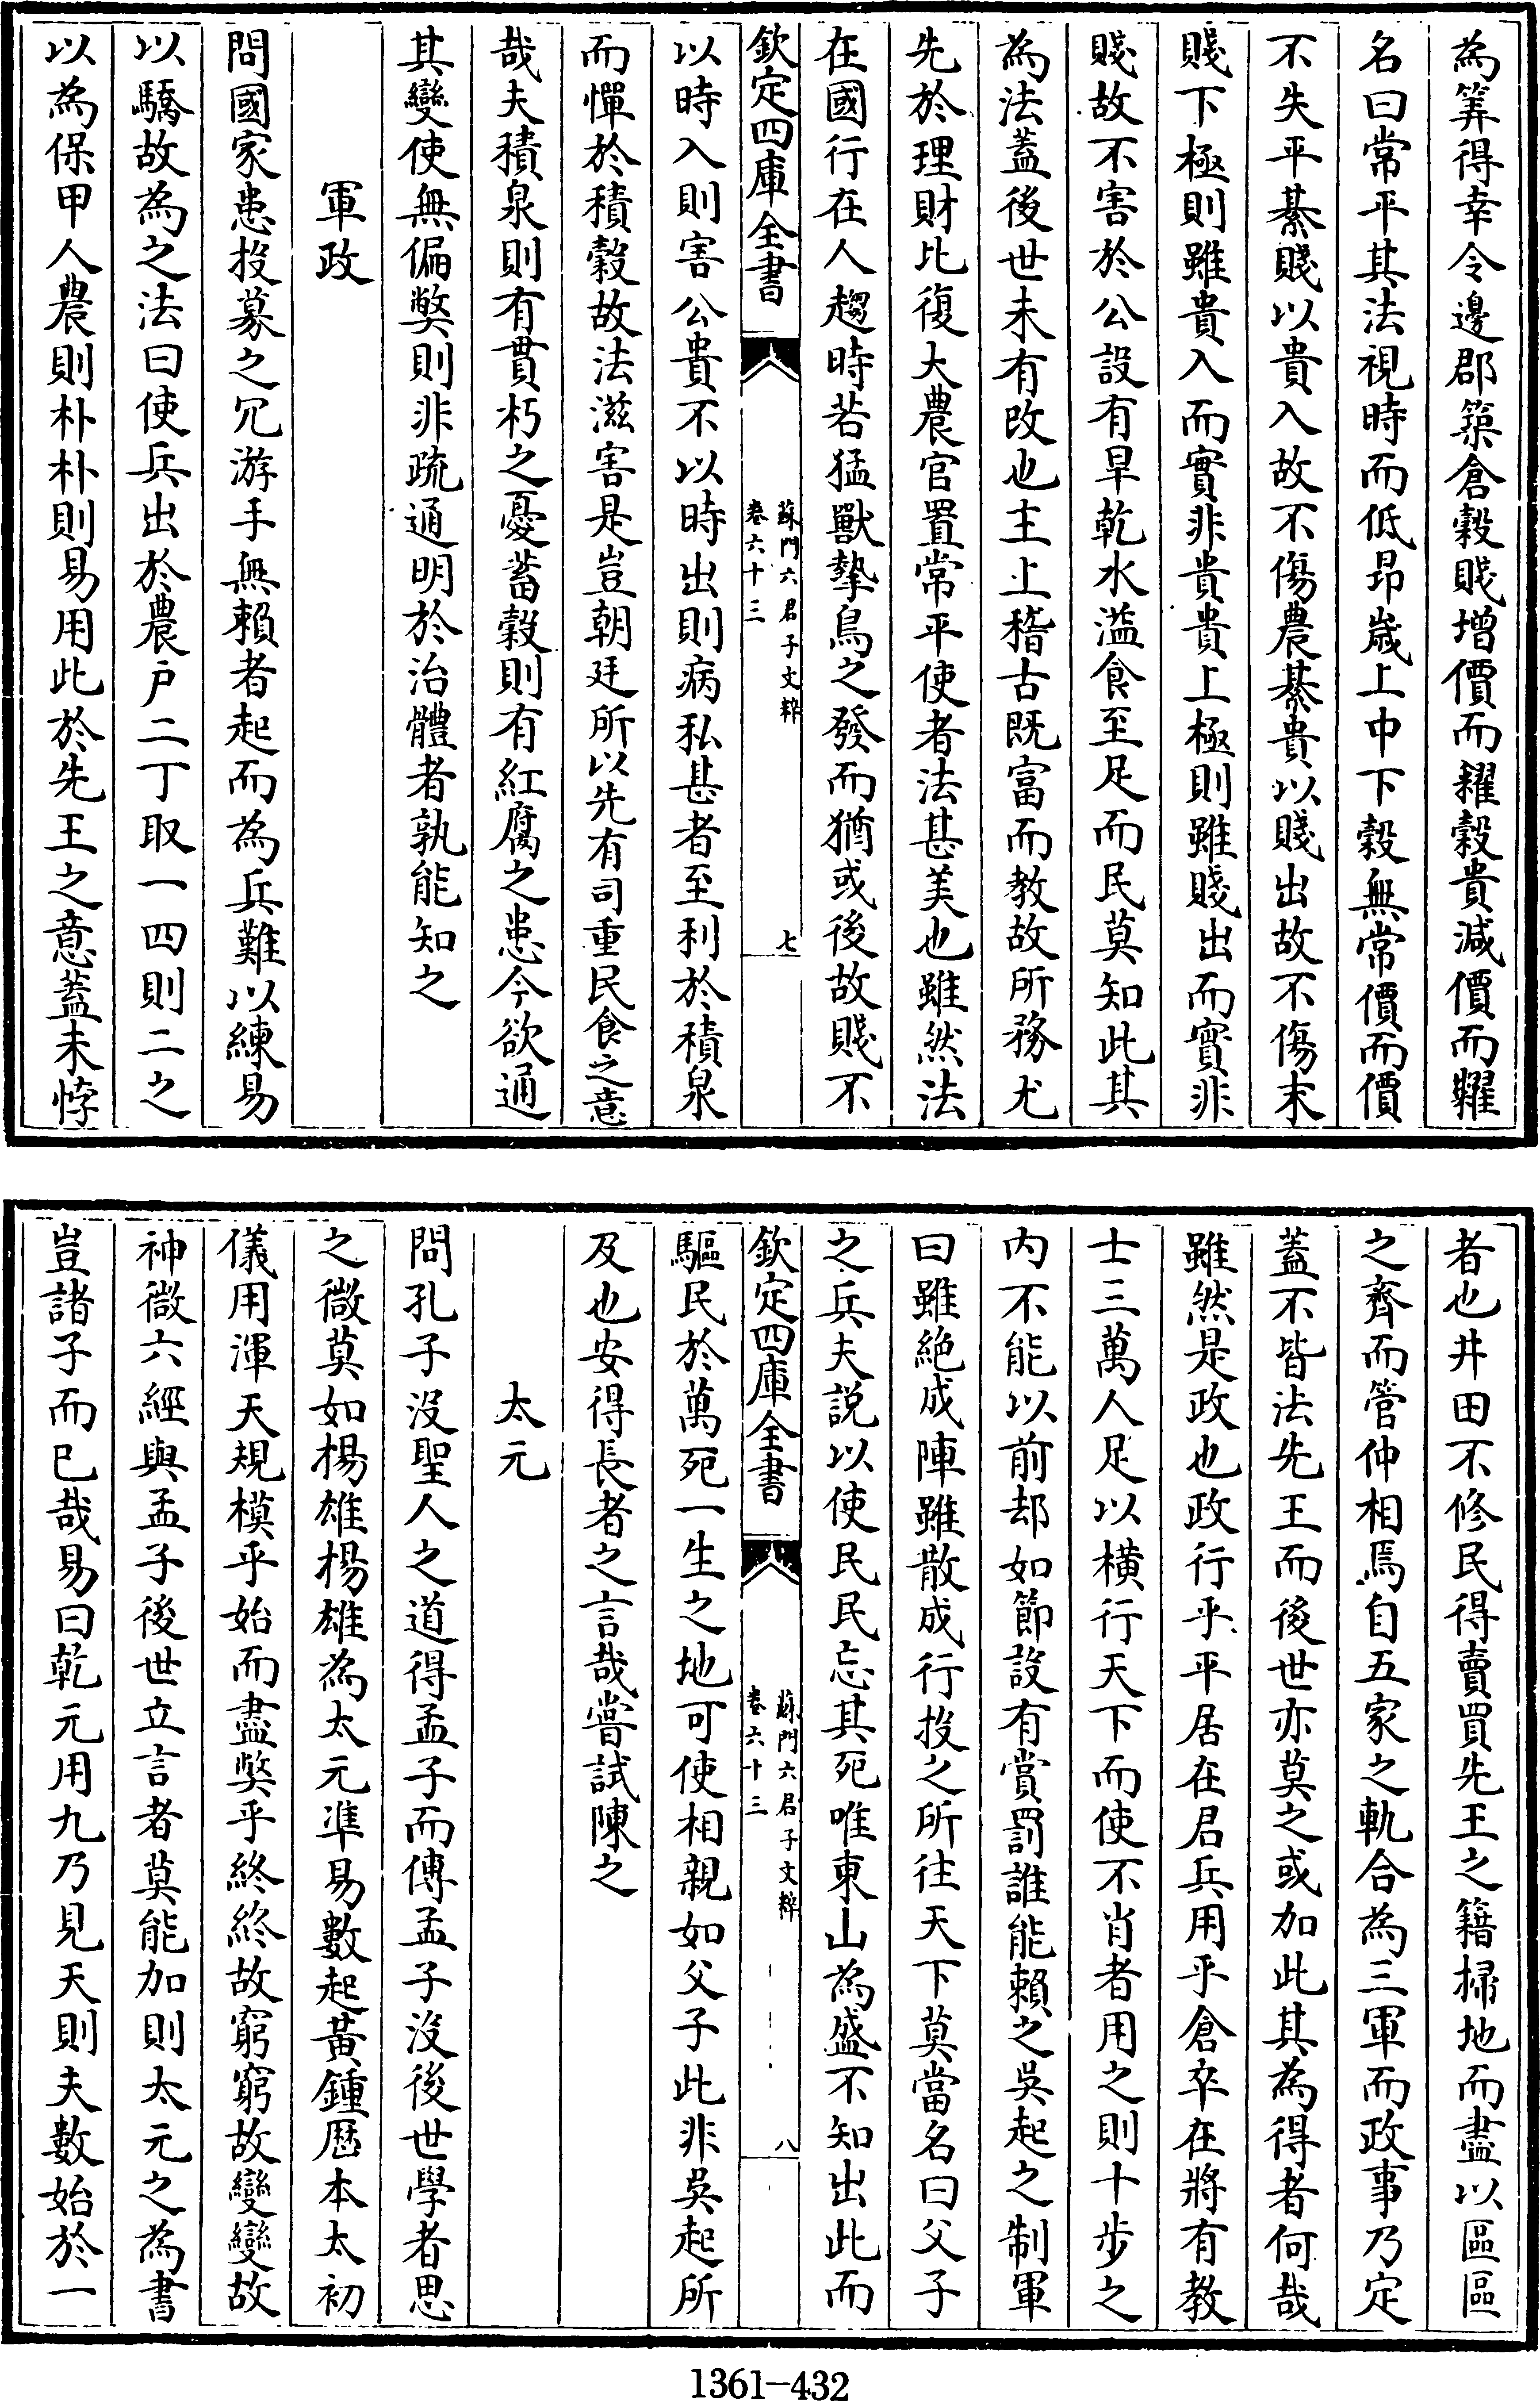 為筭得幸令邊郡築倉穀賤增價而糴穀貴減價而糶
名曰常平其法視時而低昂歲上中下穀無常價而價
不失平綦賤以貴入故不傷農綦貴以賤出故不傷末
賤下極則雖貴入而實非貴貴上極則雖賤出而實非
賤故不害於公設有旱乾水溢食至足而民莫知此其
為法蓋後世未有改也主上稽古既富而教故所務尤
先於理財比復大農官置常平使者法甚美也雖然法
在國行在人趨時若猛獸摯鳥之發而猶或後故賤不
欽定四庫全書
蘇門六君子文粹
卷六十三
七
以時入則害公貴不以時出則病私甚者至利於積泉
而憚於積穀故法滋害是豈朝廷所以先有司重民食之意
哉夫積泉則有貫朽之憂蓄穀則有紅腐之患今欲通
其變使無偏弊則非疏通明於治體者孰能知之
軍政
問國家患投募之冗游手無賴者起而為兵難以練易
以驕故為之法曰使兵出於農戶二丁取一四則二之
以為保甲人農則朴朴則易用此於先王之意蓋未悖
者也井田不修民得賣買先王之籍掃地而盡以區區
之齊而管仲相焉自五家之軌合為三軍而政事乃定
蓋不皆法先王而後世亦莫之或加此其為得者何哉
雖然是政也政行乎平居在君兵用乎倉卒在將有教
士三萬人足以橫行天下而使不肖者用之則十步之
內不能以前却如節設有賞罰誰能賴之吳起之制軍
曰雖絶成陣雖散成行投之所往天下莫當名曰父子
之兵夫說以使民民忘其死唯東山為盛不知出此而
欽定四庫全書
蘇門六君子文粹
卷六十三
八
驅民於萬死一生之地可使相親如父子此非吳起所
及也安得長者之言哉嘗試陳之
太元
問孔子沒聖人之道得孟子而傳孟子沒後世學者思
之微莫如楊雄楊雄為太元準易數起黃鍾厯本太初
儀用渾天規模乎始而盡弊乎終終故窮窮故變變故
神微六經與孟子後世立言者莫能加則太元之為書
豈諸子而已哉易曰乾元用九乃見天則夫數始於一
1361-432